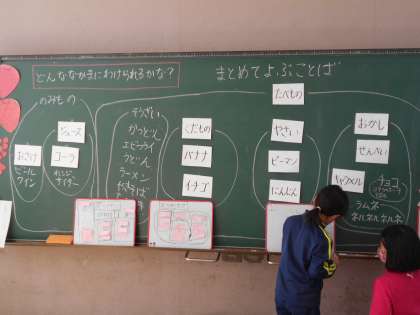 どんななかまにわけられるかな？
まとめてよぶことば
たべもの
のみもの
ジュース
おさけ
コーラ
ビール
ワイン
オレンジ
サイダー
かつどん
エビフライ
うどん
ラーメン
くだもの
バナナ
イチゴ
やさい
ピーマン
にんじん
おかし
せんべい
キャラメル
チョコ
ラムネ
ネルネルネルネ